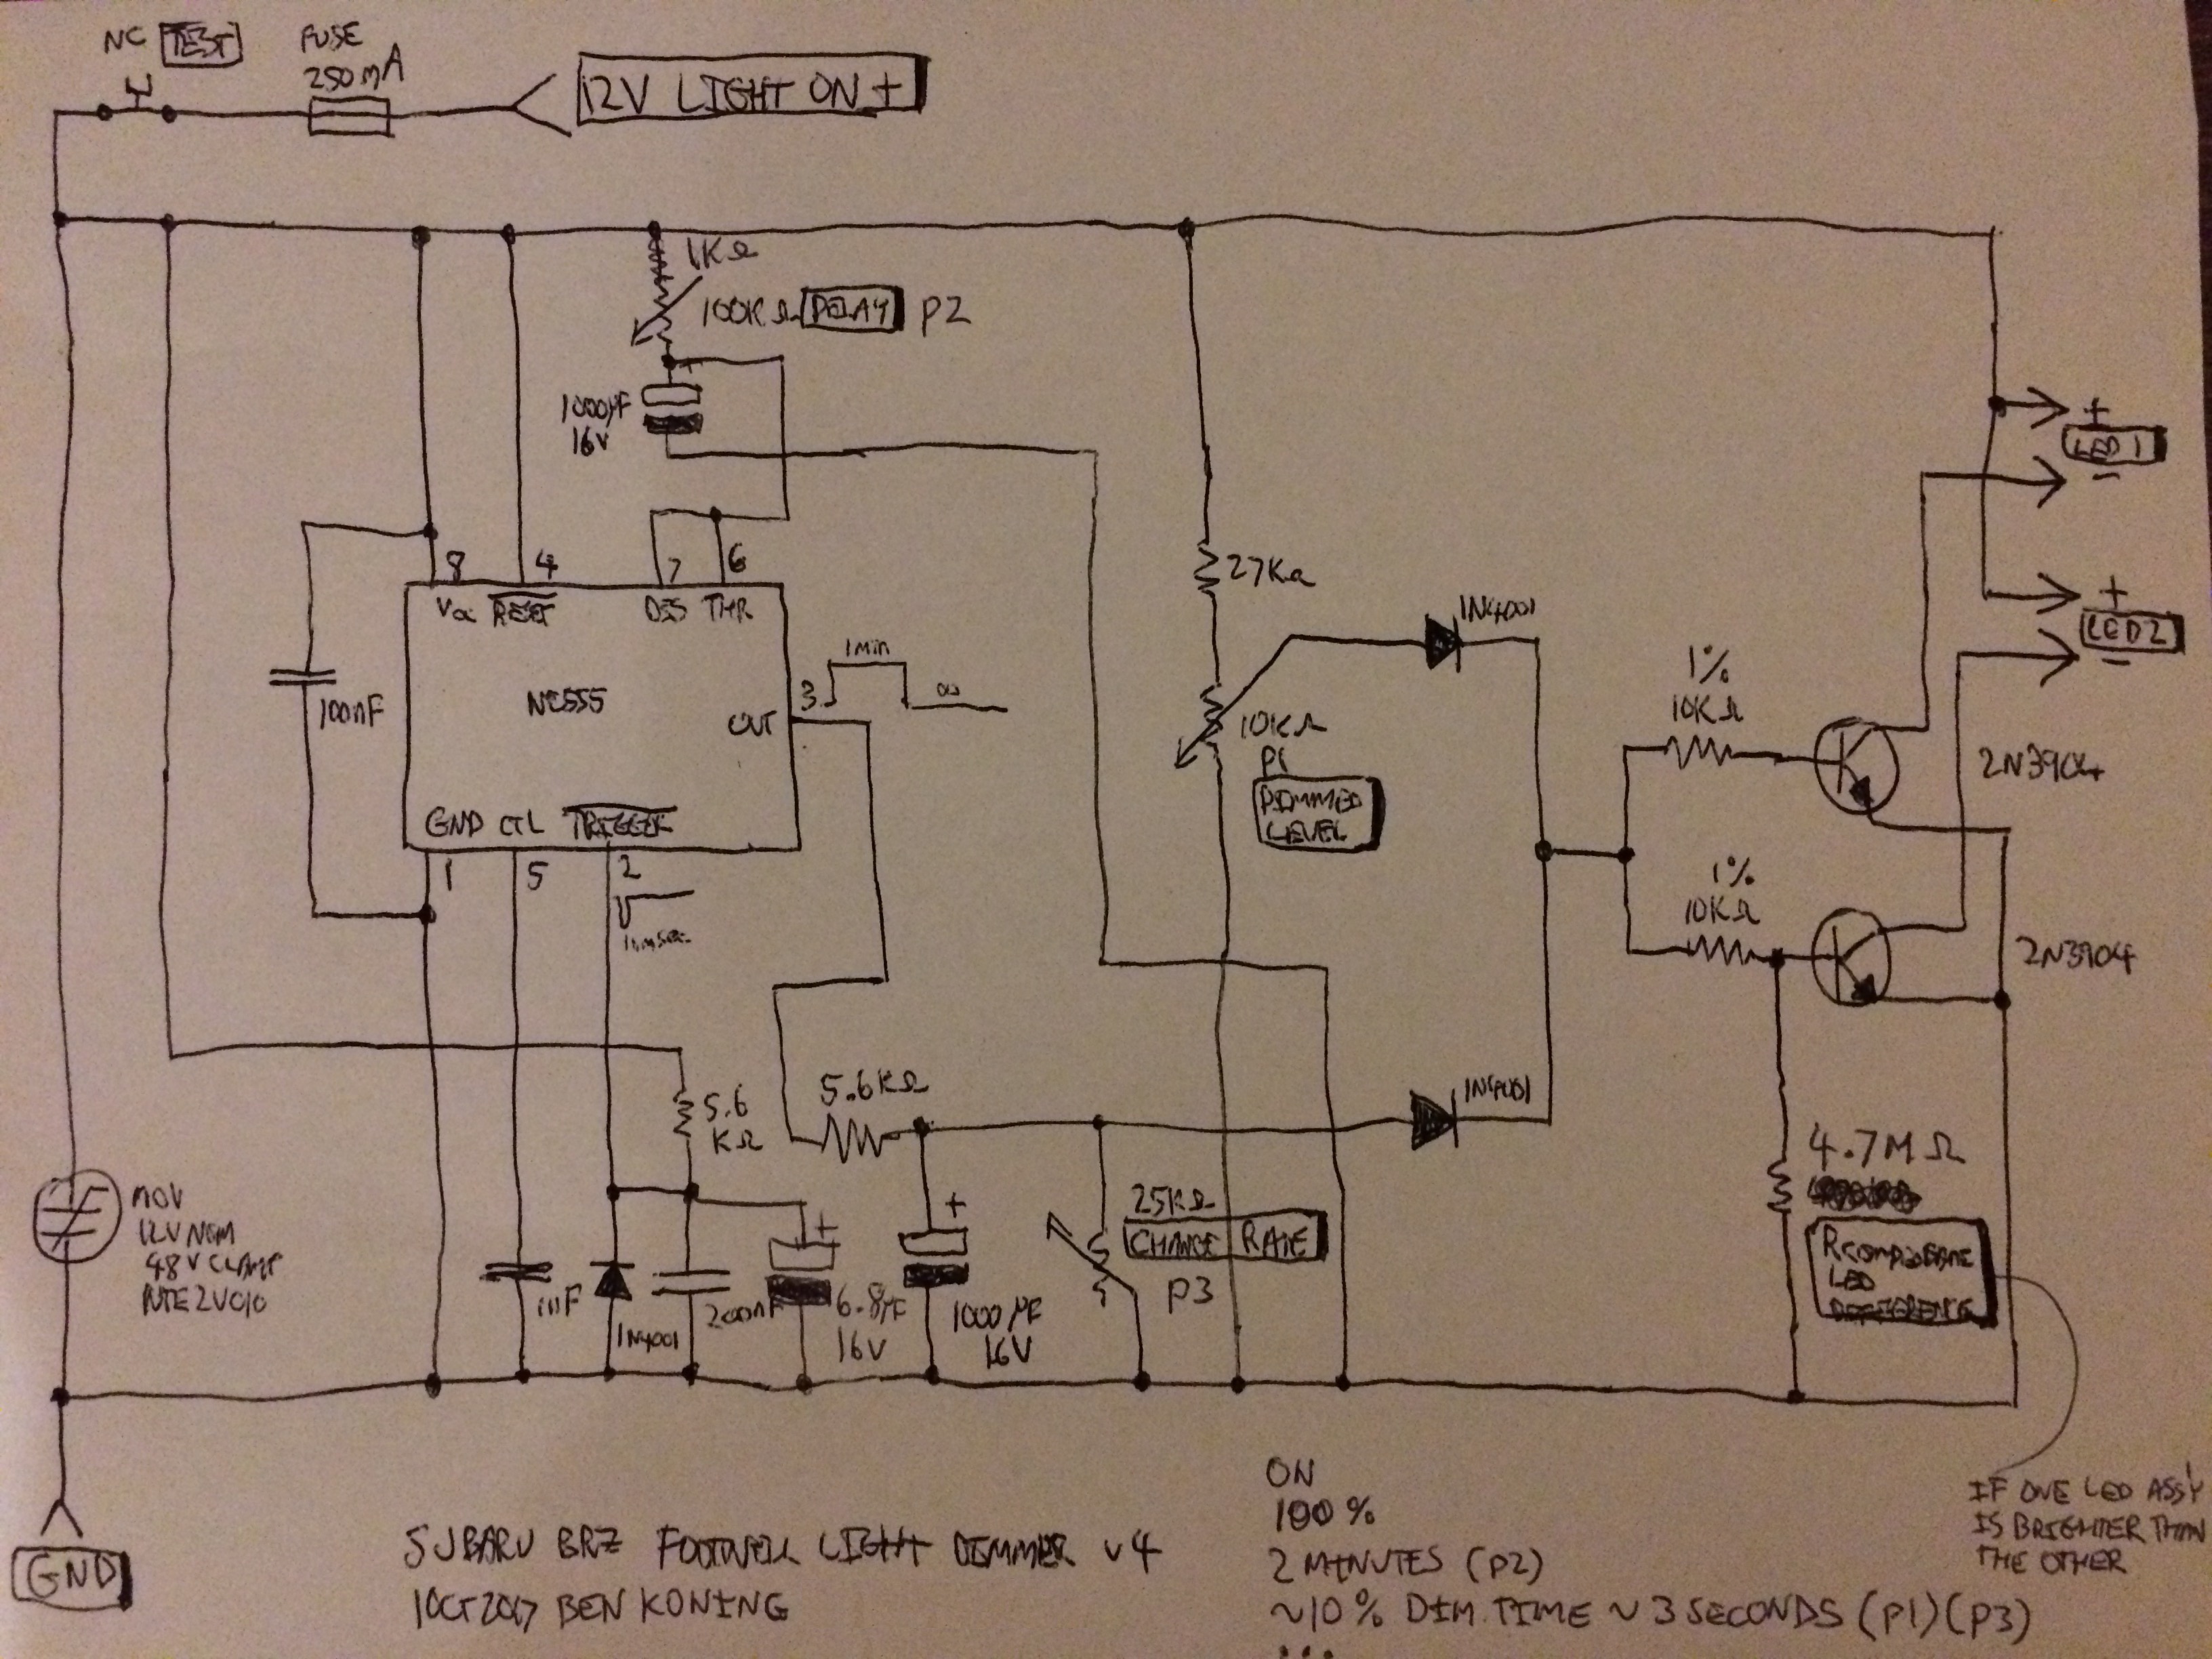 NC TEST
FUSE
250mA
12V LIGHT ON +
1KΩ
100KΩ DELAY P2
+
1000µF
16V
8 4 7 6
Vcc RESET DIS THR
NE555
100nF
3 1min ∞
OUT
GND CTL TRIGGER
1 5 2
27KΩ
10KΩ
P1
DIMMED
LEVEL
1N4001
1%
10KΩ
1%
10KΩ
2N3904
2N3904
+
LED1
-
+
LED2
-
5.6
KΩ
5.6KΩ
1N4001
MOV
12V NOM
48V CLAMP
NTE2V010
1nF
1N4001
200nF
+
6.8µF
16V
+
1000µF
16V
25KΩ
CHANGE RATE
P3
4.7MΩ
LED
DIFFERENCE
IF ONE LED ASS'Y
IS BRIGHTER THAN
THE OTHER
GND
SUBARU BRZ FOOTWELL LIGHT DIMMER v4
1OCT2017 BEN KONING
ON
100%
2 MINUTES (P2)
~10% DIM. TIME ~3 SECONDS (P1)(P3)
...